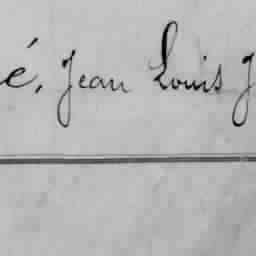 é, Jean Louis J